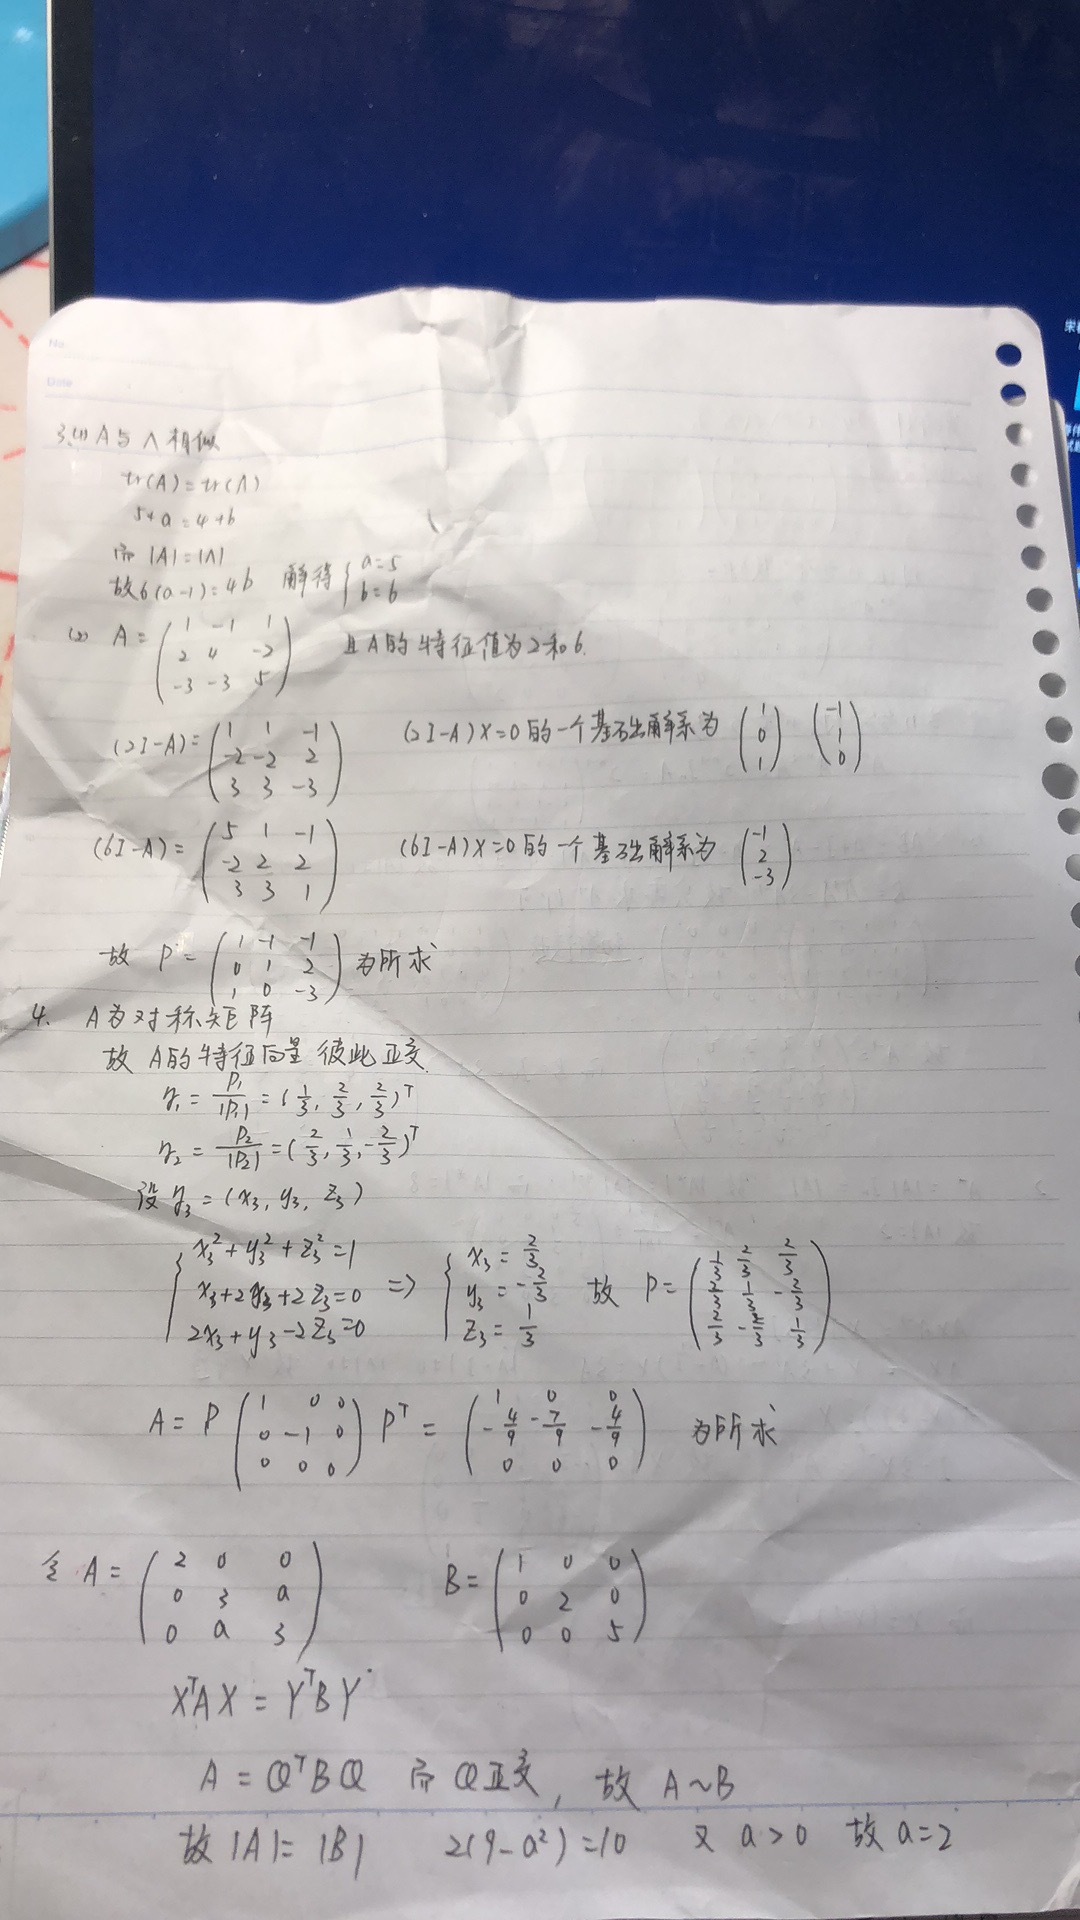 No.
Date
3.(1) A与Λ相似
tr(A)=tr(Λ)
5+a=4+b
而 |A|=|Λ|
故6(a-1)=4b 解得 { a=5 b=6
(2) A= ( 1 -1 1
2 4 -2
-3 -3 5 ) 且A的特征值为2和6.
(2I-A)= ( 1 1 -1
-2 -2 2
3 3 -3 ) (2I-A)X=0的一个基础解系为 ( 1 0 1 ) ( -1 1 0 )
(6I-A)= ( 5 1 -1
-2 2 2
3 3 1 ) (6I-A)X=0的一个基础解系为 ( -1 2 -3 )
故 P= ( 1 -1 -1
0 1 2
1 0 -3 ) 为所求
4. A为对称矩阵
故 A的特征向量彼此正交
η₁ = P₁/|P₁| = (1/3, 2/3, 2/3)ᵀ
η₂ = P₂/|P₂| = (2/3, 1/3, -2/3)ᵀ
设 η₃ = (x₃, y₃, z₃)
{ x₃²+y₃²+z₃²=1
x₃+2y₃+2z₃=0
2x₃+y₃-2z₃=0
⇒ { x₃ = 2/3
y₃ = -2/3
z₃ = 1/3
故 P= ( 1/3 2/3 2/3
2/3 1/3 -2/3
2/3 -2/3 1/3 )
A = P ( 1 0 0
0 -1 0
0 0 0 ) Pᵀ = ( 1 0 0
-4/9 -7/9 -4/9
0 0 0 ) 为所求
令 A= ( 2 0 0
0 3 a
0 a 3 ) B= ( 1 0 0
0 2 0
0 0 5 )
XᵀAX = YᵀBY
A = QᵀBQ 而 Q正交, 故 A~B
故 |A|=|B| 2(9-a²)=10 又 a>0 故a=2